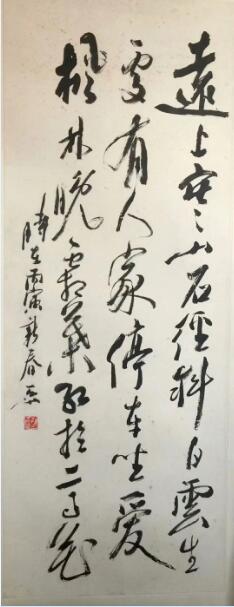 遠上寒山石徑斜白雲生
處有人家停車坐愛
楓林晚霜葉紅於二月花
時在丙寅新春